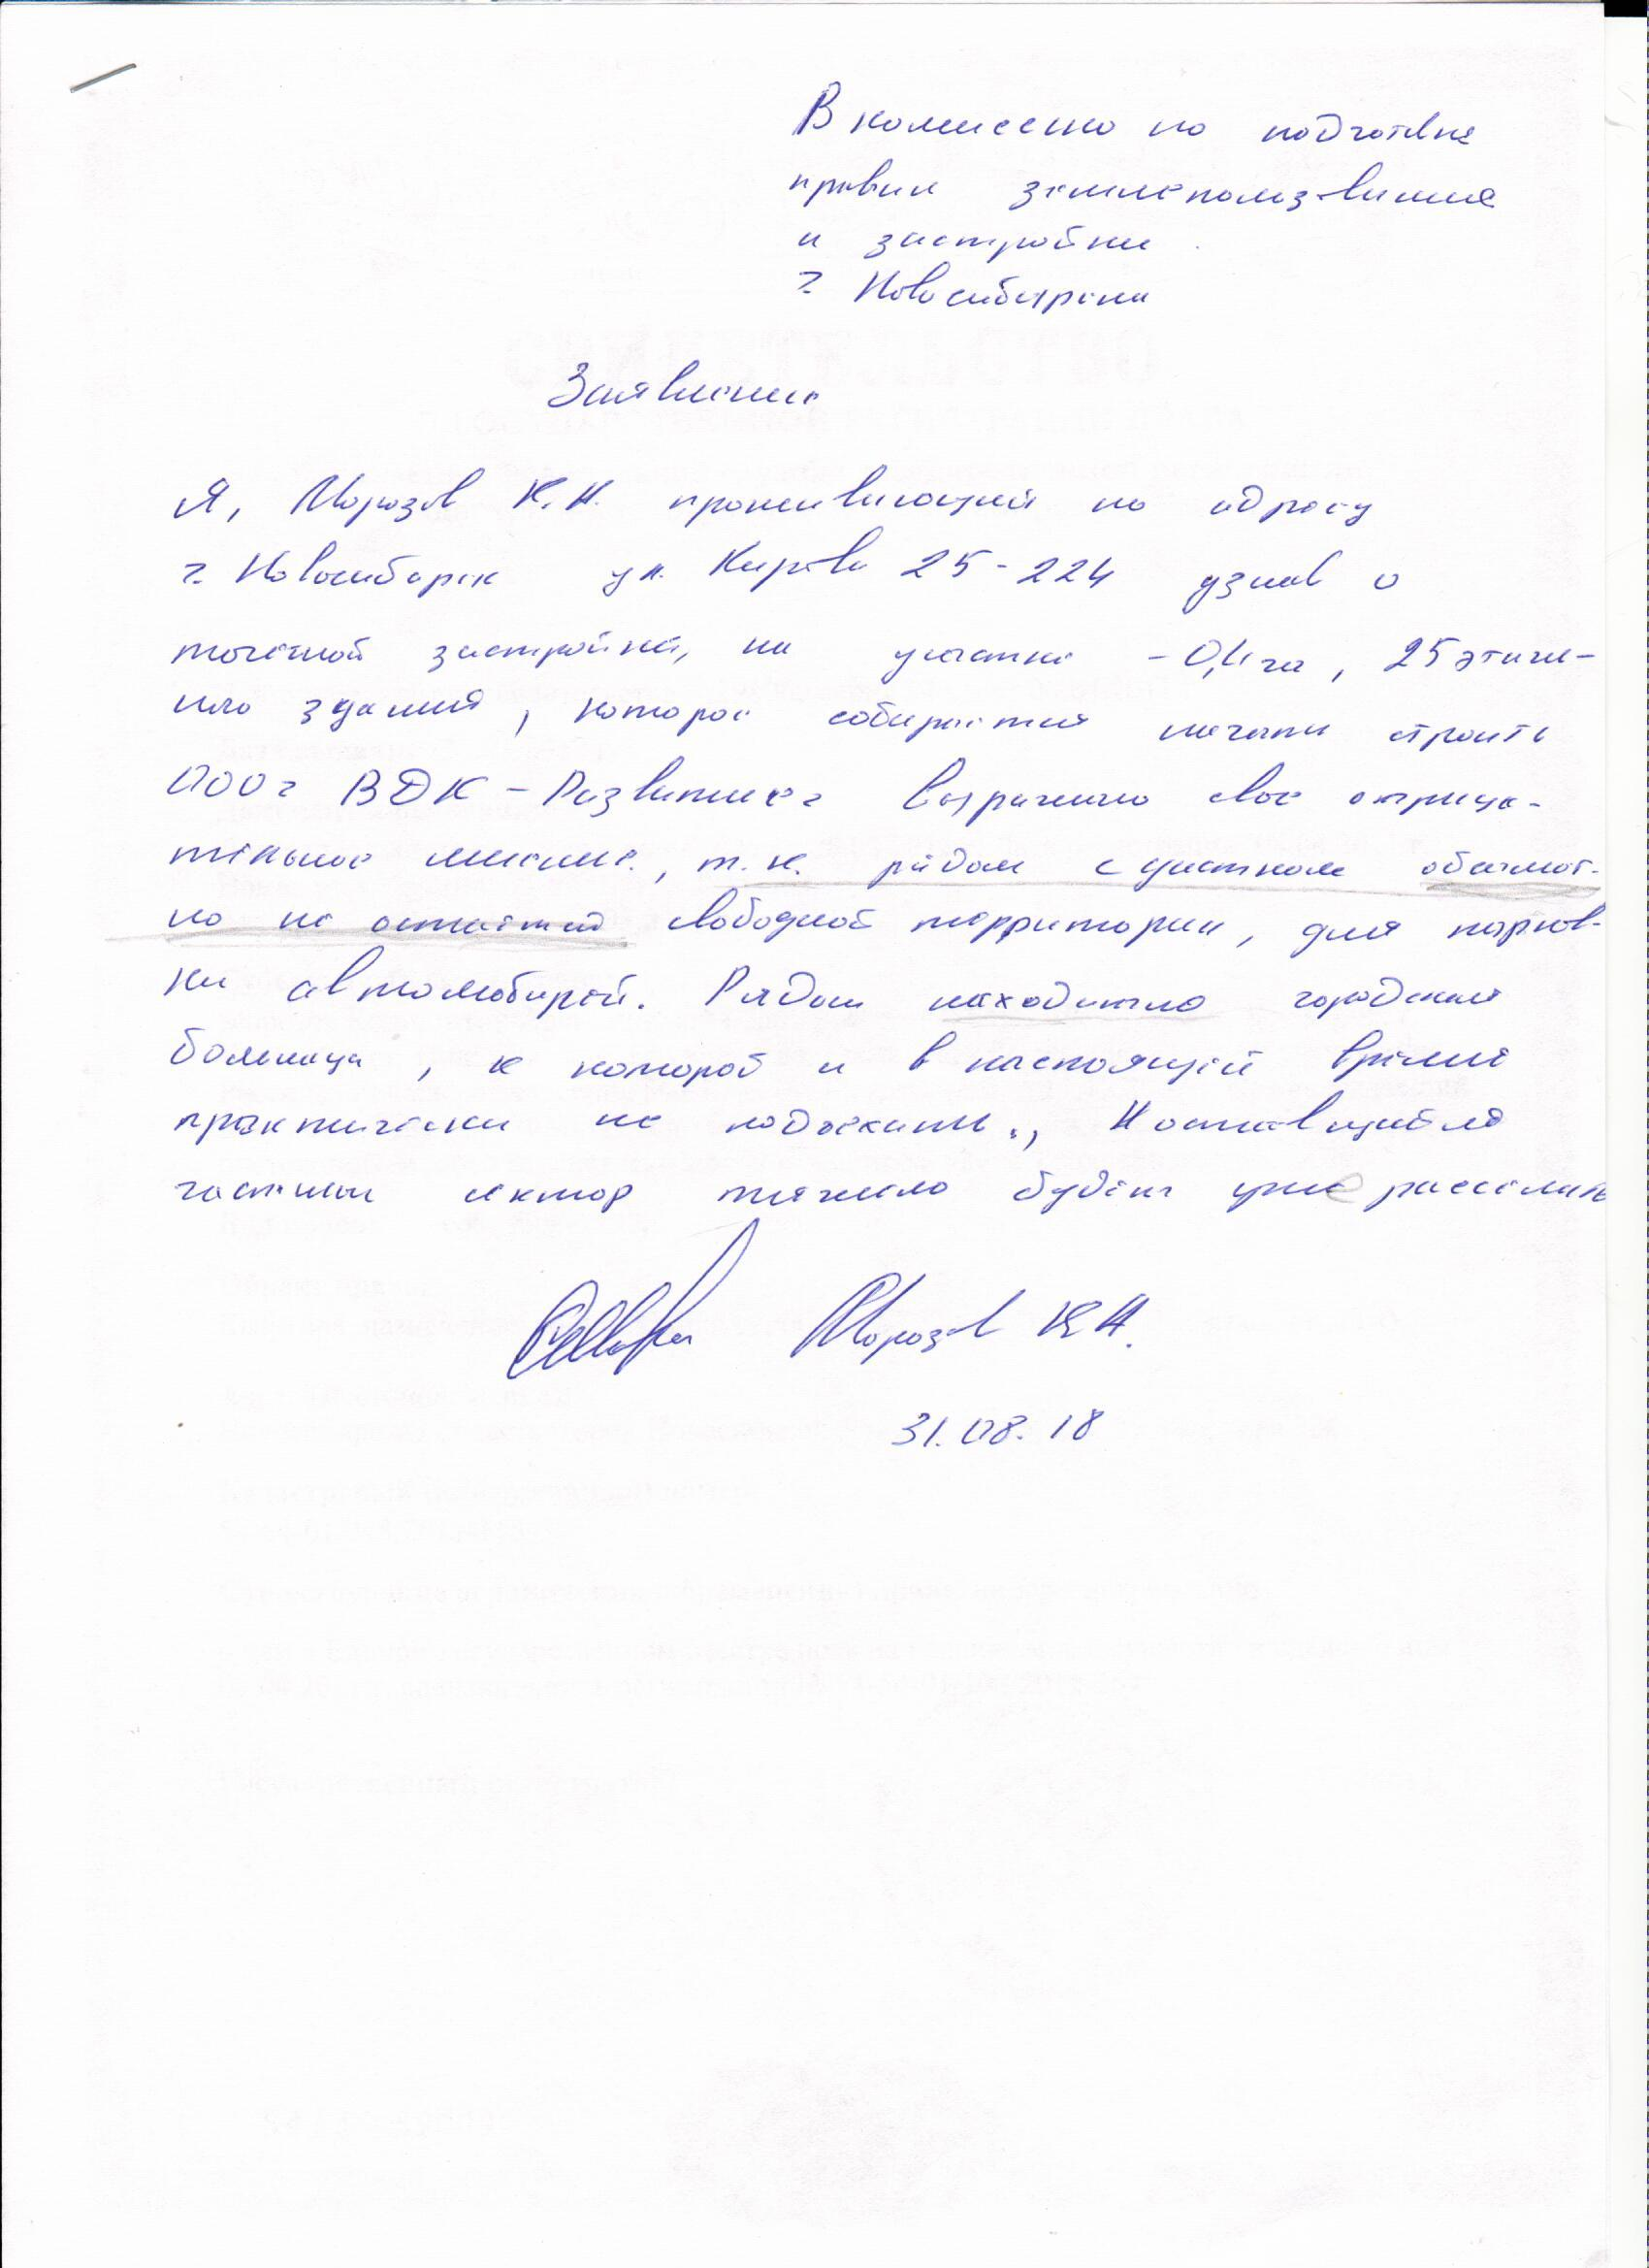 В комиссию по подготовке
правил землепользования
и застройки
г. Новосибирска
Заявление
Я, Морозов К.Н. проживающий по адресу
г. Новосибирск ул. Кирова 25-224 узнав о
точечной застройке, на участке - га, 25 этажн-
ого здания, которое собирается начать строить
ООО "ВДК - Развитие" выражаю свое отрица-
тельное мнение, т.к. рядом с участком
но не остается свободной территории, для парков-
ки автомобилей. Рядом находится городская
больница, к которой и в настоящее время
практически не подъехать., И оставшийся
частный сектор тяжело будет уже расселить
Морозов К.Н.
31.08.18